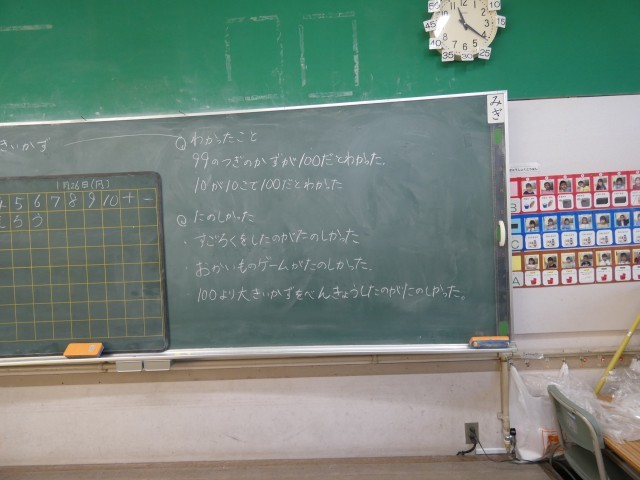 みぎ
きいかず
わかったこと
99のつぎのかずが100だとわかった.
10が10こで100だとわかった
たのしかった
・すごろくをしたのがたのしかった
・おかいものゲームがたのしかった.
100より大きいかずをべんきょうしたのがたのしかった。
1月26日(月)
4 5 6 7 8 9 10 + -
12 11 10 5
50 55 5 10 15 20 25 30 35 40 45
B
C
A